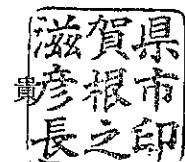 滋賀県
彦根市
長之印